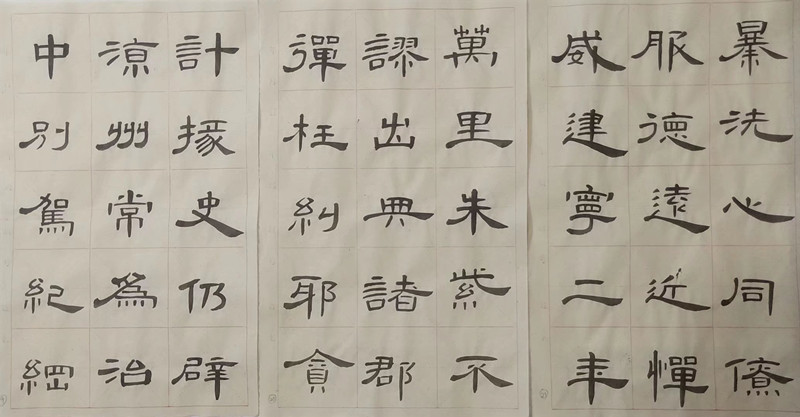 計掾史仍辟
涼州常為治
中別駕紀綱
萬里朱紫不
謬出典諸郡
彈枉糾耶貪
暴洗心同僚
服德遠近憚
威建寧二年